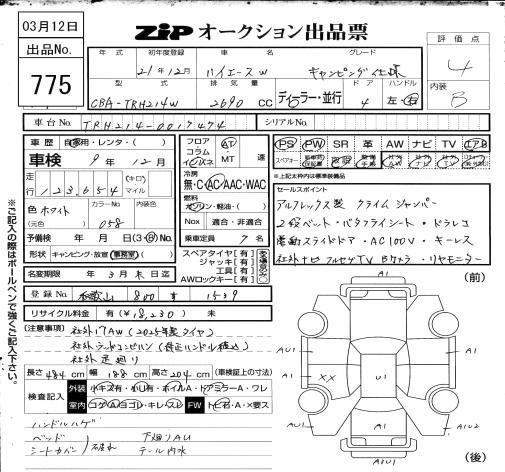 03月12日
ZiP オークション出品票
出品No.
775
年式 初年度登録 車名 グレード
21年12月 ハイエースW キャンピング仕様
型式 排気量 ドア ハンドル
CBA-TRH214W 2690 CC ディーラー・並行 4 左・右
評価点
4
内装
B
車台No. TRH214-0017474 シリアルNo.
車歴 自家用・レンタ・( )
車検 9年12月
走行 123,654 (キロ) マイル
色 ホワイト カラーNo. 内装色
(元色) 058
予備検 年 月 日(3・8)No.
形状 キャンピング・放宣(事務室)
フロア コラム インパネ AT MT 速
冷房 無・C・AC・AAC・WAC
燃料 ガソリン・軽油・( )
Nox 適合・非適合
乗車定員 7名
スペアタイヤ[有]
ジャッキ[有]
工具[有]
AWロックキー[有]
PS PW SR 革 AW ナビ TV エアB
スペアキー 取説 社外AW 社外ナビ 社外TV
※上記太枠内は標準装備品
セールスポイント
アルフレックス製 クライムジャンパー
2段ベット・バタフライシート・ドラレコ
電動スライドドア・AC100V・キーレス
社外ナビ フルセグTV Bカメラ・リヤモニター
名変期限 3月末日迄
登録No. 和歌山 800 す 1539
リサイクル料金 有(¥18,230) 未
[注意事項] 社外17AW(2025年製タイヤ)
社外ウッドコンビハン(純正ハンドル積込)
社外足廻り
長さ 484 cm 幅 188 cm 高さ 204 cm (車検証上の寸法)
検査記入
外装 小キズ有・小U有・ホイルA・ドアミラーA・ワレ
室内 コゲ・A・ヨゴレ・キレ・スレ FW トビ石・A・X要ス
ハンドルハゲ
ベッド
シートカバー 破れ
下廻りAU
テール内水
(前)
A1
AU1 A1
XX U1 A1
A1 AU2
A1
(後)
※ご記入の際はボールペンで強くご記入下さい。